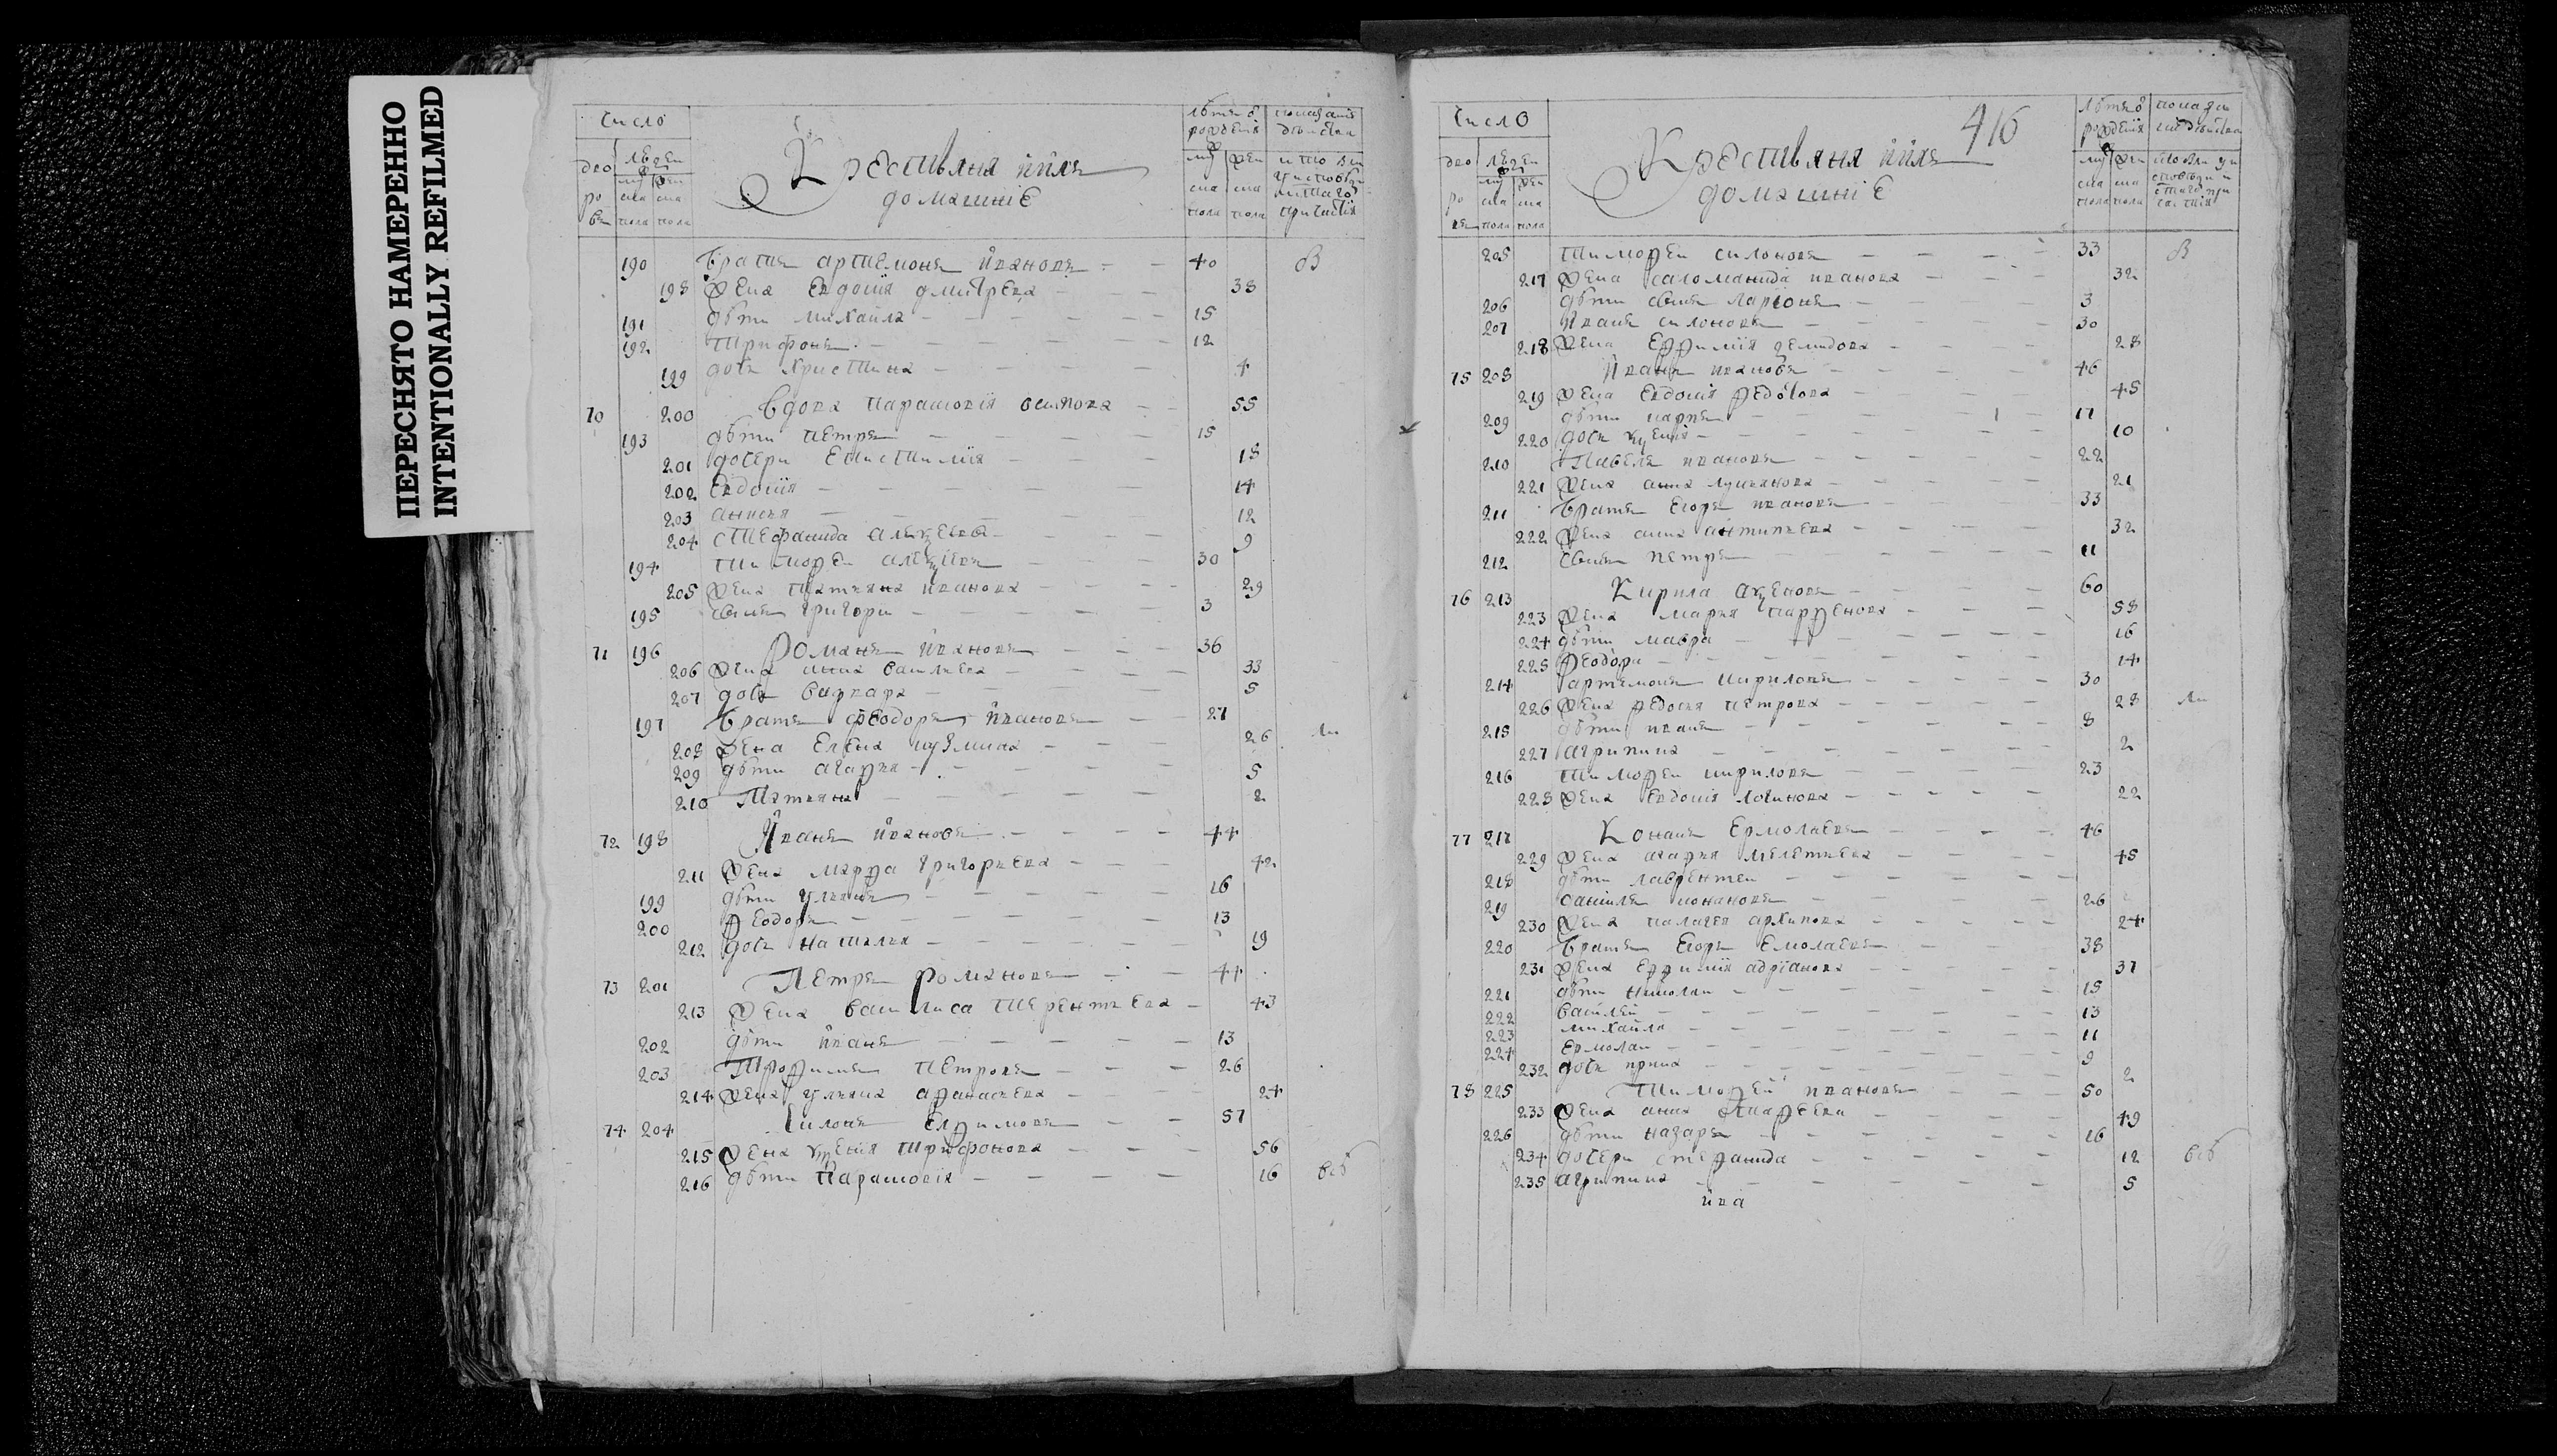 ПЕРЕСНЯТО НАМЕРЕННО
INTENTIONALLY REFILMED
Число
Крестьяня ихъ
домашніе
190 братъ артемонъ ивановъ 40 в
198 жена евдокія дмитрева 38
191 дѣти михаила 15
192 трифонъ 12
199 дочь христина 4
70 200 вдова парасковія осипова 55
193 дѣти петръ 15
201 дочери епистимия 18
202 евдокія 14
203 анисья 12
204 стефанида 9
194 тимофеи 30
205 жена татьяна иванова 29
195 сынъ григори 3
71 196 романъ ивановъ 36
206 жена анна васильева 33
207 дочь варвара 5
197 братъ феодоръ ивановъ 27
208 жена елена кузмина 26
209 дѣти агафья 5
210 татьяна 2
72 198 иванъ ивановъ 44
211 жена марфа григорьева 42
199 дѣти ульянъ 16
200 феодоръ 13
212 дочь наталья 19
73 201 петръ романовъ 44
213 жена василиса терентьева 43
202 дѣти иванъ 13
203 трофимъ петровъ 26
214 жена ульяна афанасьева 24
74 204 силонъ ефимовъ 57
215 жена ксения трифонова 56
216 дѣти парасковія 16 всѣ
416
Число
Крестьяня ихъ
домашніе
205 тимофеи силоновъ 33 в
217 жена саломанида иванова 32
206 дѣти сынъ ларіонъ 3
207 иванъ силоновъ 30
218 жена ефимія демидова 28
75 208 иванъ ивановъ 46
219 жена евдокія федотова 45
209 дѣти карпъ 17
220 дочь ксенія 10
210 павелъ ивановъ 22
221 жена анна лукьянова 21
211 братъ егоръ ивановъ 33
222 жена анна антипьева 32
212 сынъ петръ 11
76 213 кирила аксеновъ 60
223 жена марья парфенова 58
224 дѣти мавра 16
225 феодора 14
214 артемонъ кириловъ 30
226 жена федосья петрова 28
215 дѣти иванъ 8
227 агрипина 2
216 тимофеи кириловъ 23
228 жена евдокія логинова 22
77 217 конанъ ермолаевъ 46
229 жена агафья мелетьева 45
218 дѣти лаврентеи
219 данилъ конановъ 26
230 жена палагея архипова 24
220 братъ егоръ емолаевъ 38
231 жена ефимія адріанова 37
221 дѣти николаи 15
222 василей 13
223 михайла 11
224 ермолаи 9
232 дочь ирина 2
78 225 тимофей ивановъ 50
233 жена анна 49
226 дѣти назаръ 16
234 дочери стефанида 12 всѣ
235 агрипина 5
ива